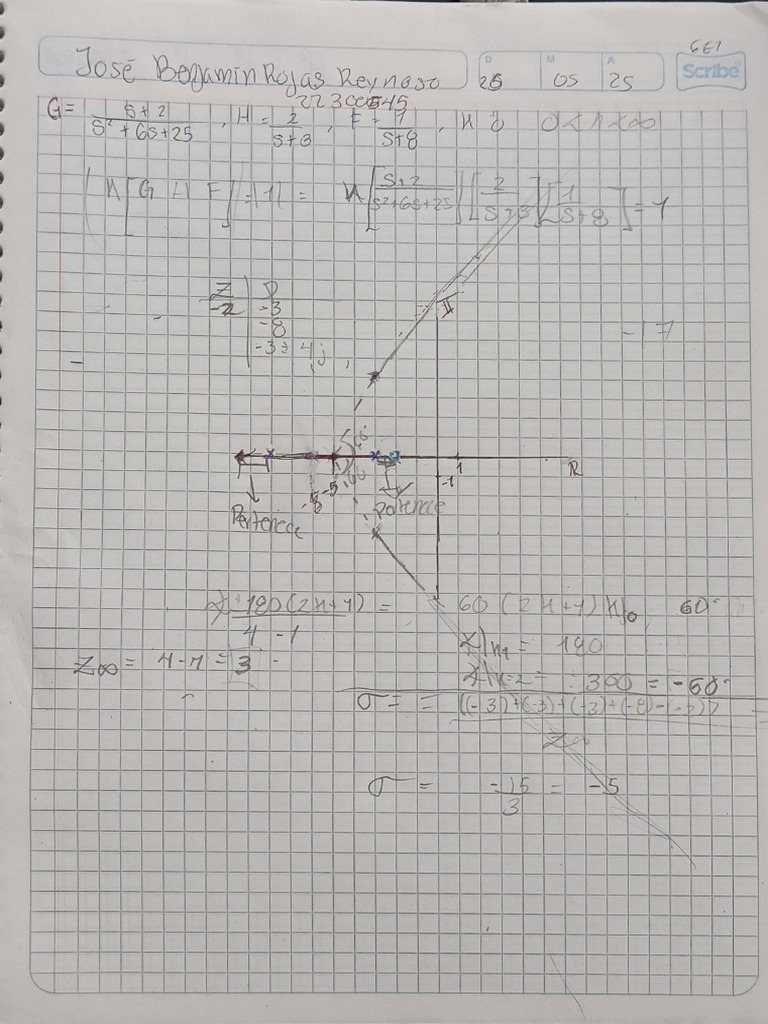 José Benjamin Rojas Reynoso
D M A
25 05 25
Scribe
G = s+2 / s²+6s+25 , H = 2 / s+3 , F = 1 / s+8 , K 0<K<∞
K[G H F] = |1| = K[s+2 / s²+6s+25][2 / s+3][1 / s+8] = -1
Z P
-2 -3
-8
-3 ± 4j
II
-17
1
R
-1
-8 -5
Pertenece Pertenece
∡ ±180(2K+1) / 4-1 = 60(2K+1) K|0 60°
Z∞ = 4-1 = 3
∡|K1 = 180
∡|K=2 = 300 = -60°
σ = = ((-3)+(-3)+(-3)+(-8)-(-2)) / Z∞
σ = -15 / 3 = -5